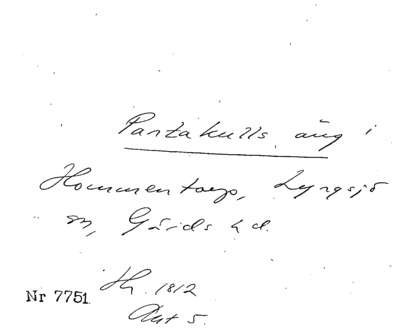 Partakulls äng i
Hommentorp, Lyngsjö
sn, Gärds hd.
Hh. 1812
Nr 7751
Akt 5.